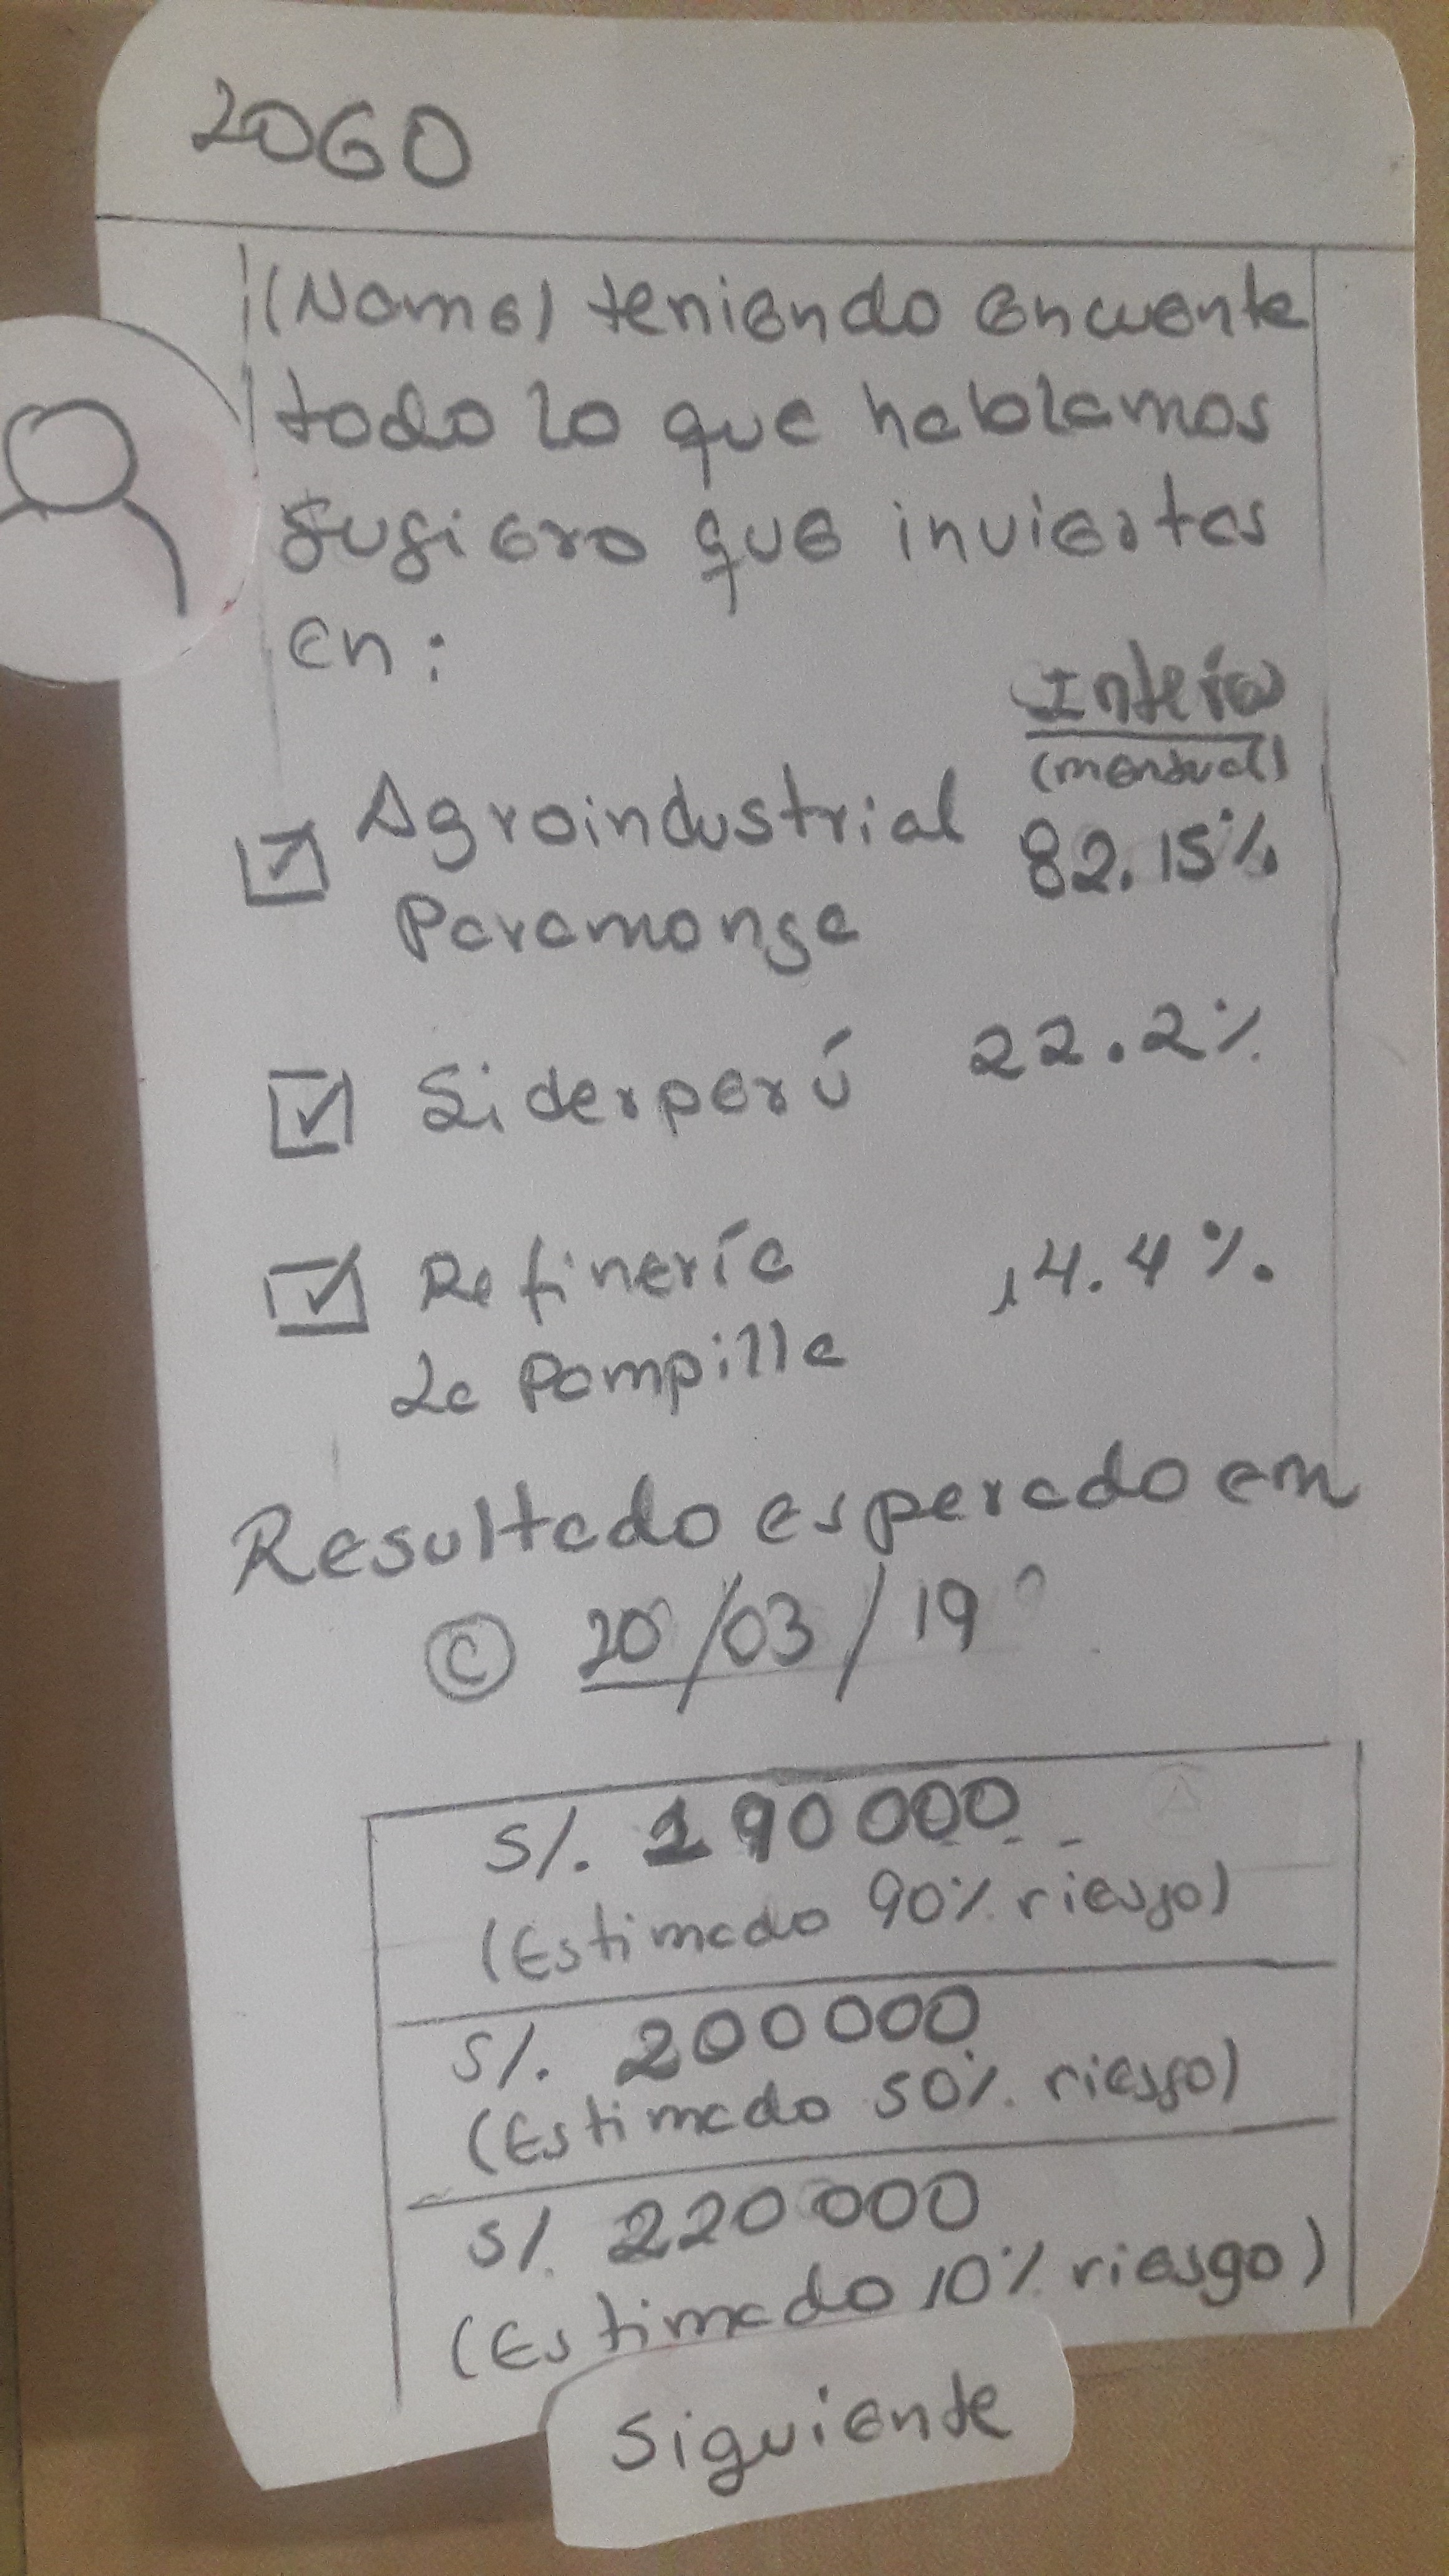 LOGO
(Nome) teniendo encuenta
todo lo que hablamos
sugiero que inviertas
en:
Interés
(mensual)
Agroindustrial 82.15%
Paramonga
Siderperú 22.2%
Refinería 14.4%.
La Pampilla
Resultado esperado em
© 20/03/19
S/. 190000
(Estimado 90% riesgo)
S/. 200000
(Estimado 50% riesgo)
S/. 220000
(Estimado 10% riesgo)
Siguiente